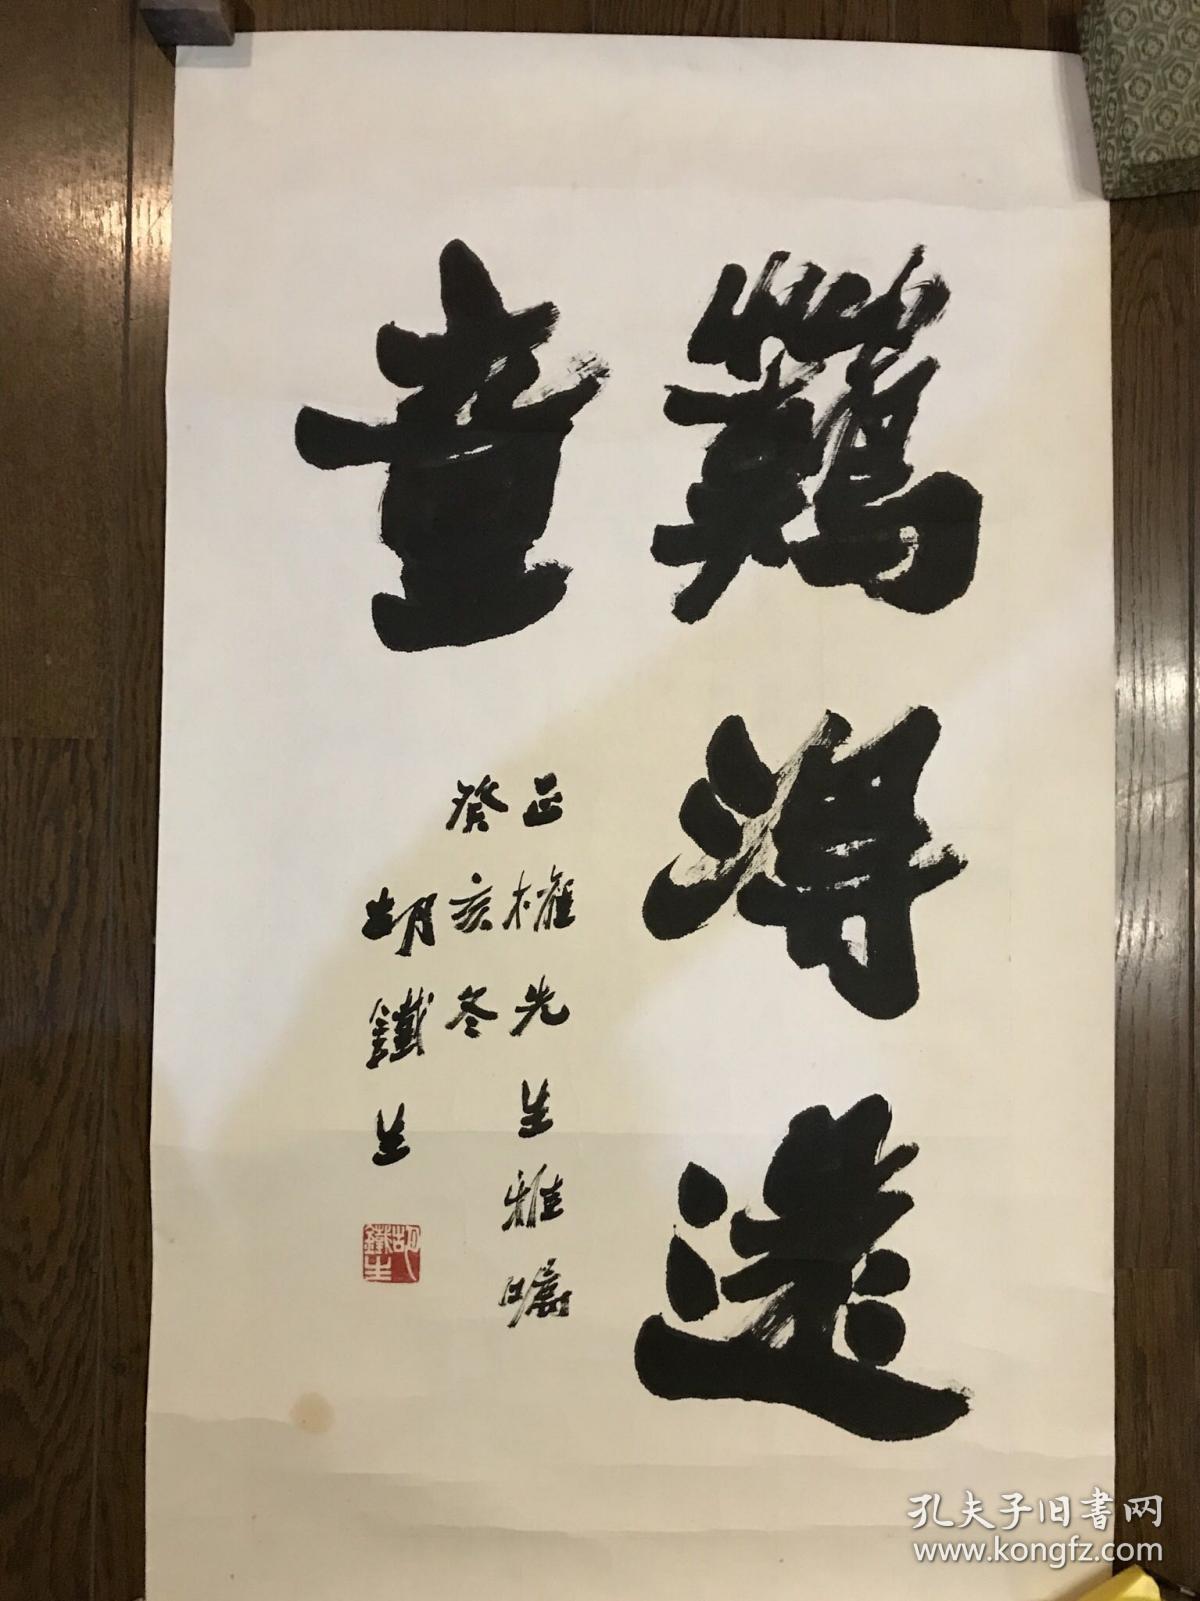 得遠
正權先生雅囑
癸亥冬
胡鐵生
胡鐵生
孔夫子旧書网
www.kongfz.com